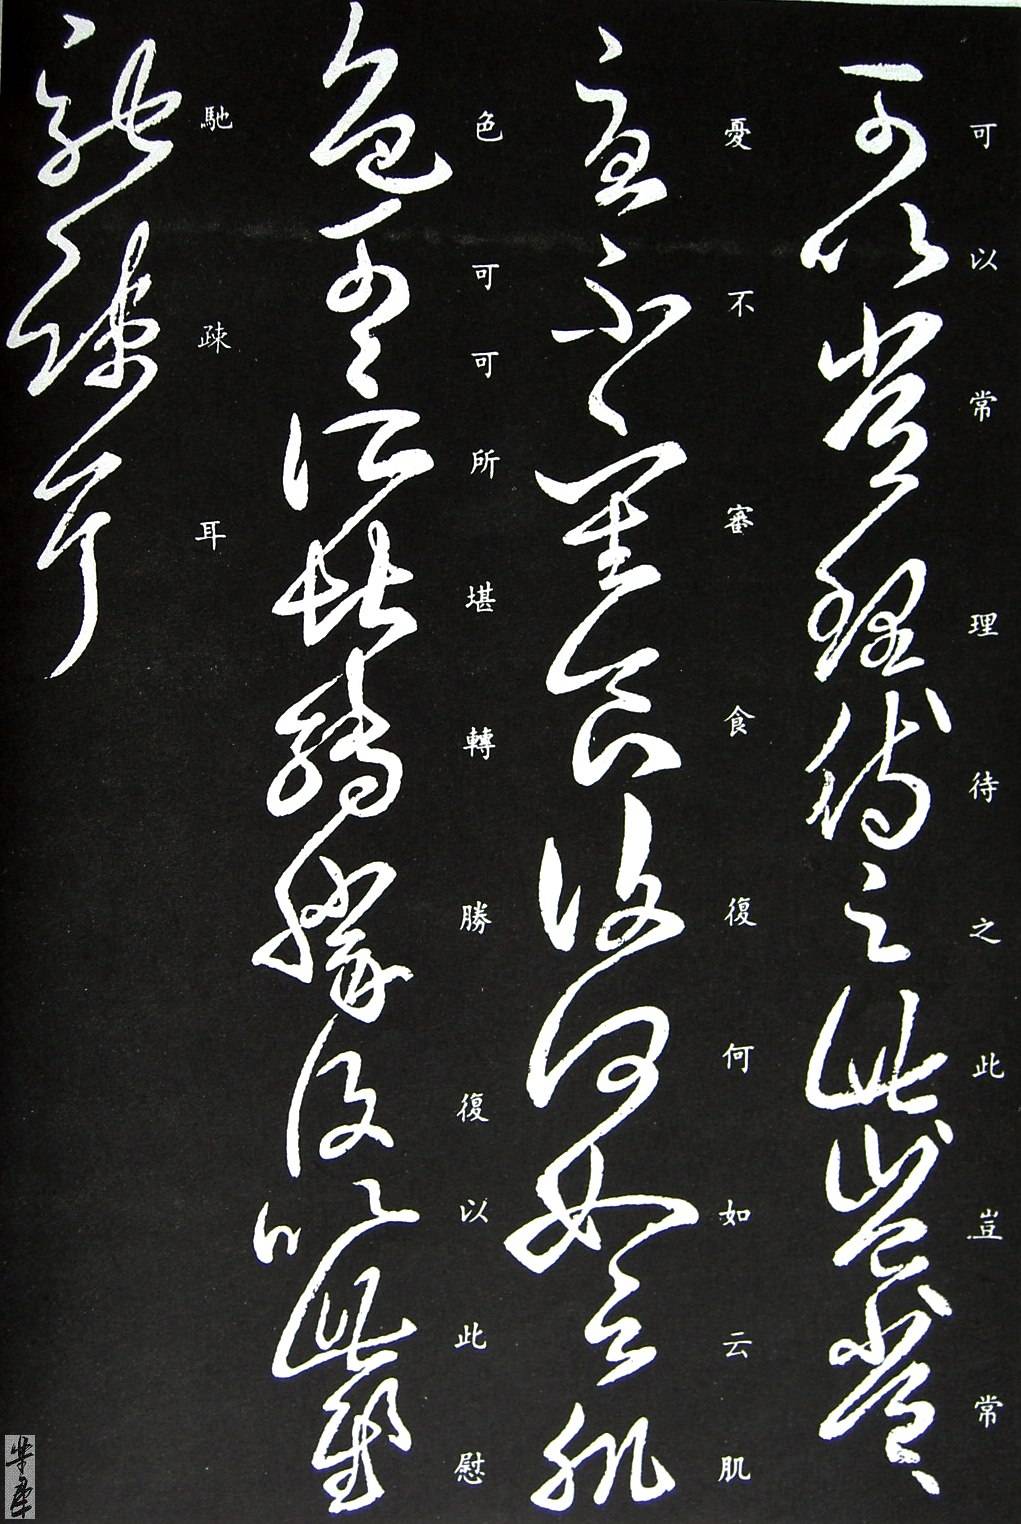 可以常理待之此豈常
憂不審食復何如云肌
色可可所堪轉勝復以此慰
馳疎耳